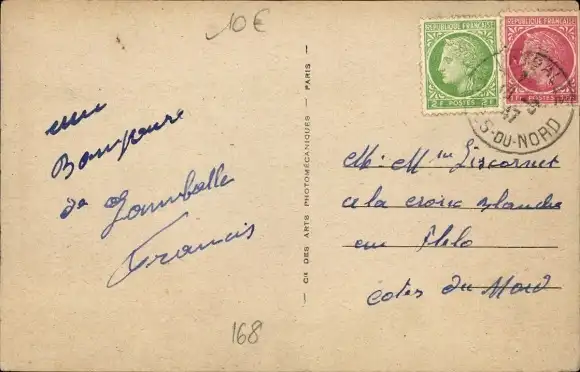 10 €
REPUBLIQUE FRANÇAISE
2F POSTES 2F
REPUBLIQUE FRANÇAISE
POSTES
S-DU-NORD
47
un
Bonjour
de Lamballe
Francis
168
CIE DES ARTS PHOTOMÉCANIQUES — PARIS —
M. Mme Liscornet
a la croix blanche
en Plelo
Cotes du Nord